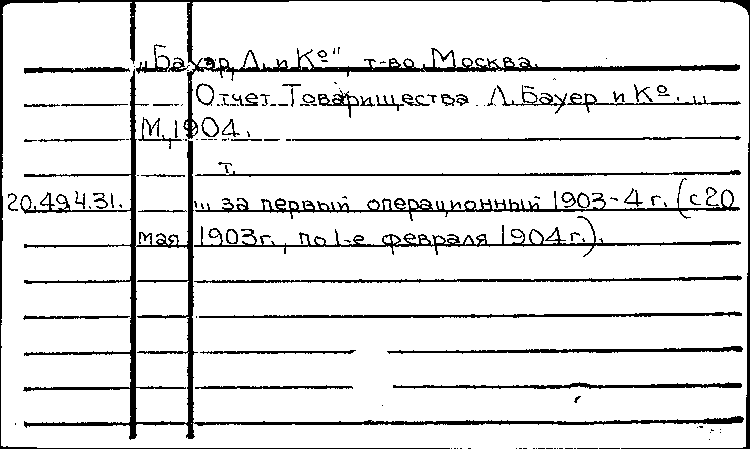 „Бауер, Л. и Кº", т-во, Москва.
Отчет Товарищества Л. Бауер и Кº. ...
М., 1904.
т.
20.49.4.31. ... за первый операционный 1903-4 г. (с 20
мая 1903г., по 1-е февраля 1904г.).